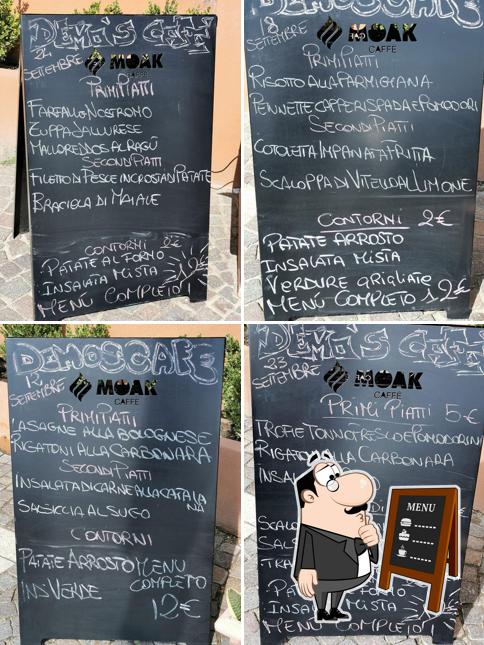 DEMO'S CAFÈ
24
SETTEMBRE
MOAK
CAFFÈ
PRIMI PIATTI
FARFALLO NOSTROMO
ZUPPA GALLURESE
MALLOREDDOS AL RAGÙ
SECONDI PIATTI
FILETTO DI PESCE IN CROSTA DI PATATE
BRACIOLA DI MAIALE
CONTORNI 2€
PATATE AL FORNO
INSALATA MISTA
MENÙ COMPLETO 12€
DEMOS CAFÈ
18
SETTEMBRE
MOAK
CAFFÈ
PRIMI PIATTI
RISOTTO ALLA PARMIGIANA
PENNETTE CAPPERI SPADA E POMODORI
SECONDI PIATTI
COTOLETTA IMPANATA FRITTA
SCALOPPA DI VITELLO AL LIMONE
CONTORNI 2€
PATATE ARROSTO
INSALATA MISTA
VERDURE GRIGLIATE
MENÙ COMPLETO 12€
DEMOS CAFÈ
12
SETTEMBRE
MOAK
CAFFÈ
PRIMI PIATTI
LASAGNE ALLA BOLOGNESE
RIGATONI ALLA CARBONARA
SECONDI PIATTI
INSALATA DI CARNE ALLA CATALA
NA
SALSICCIA AL SUGO
CONTORNI
PATATE ARROSTO
INS VERDE
MENU
COMPLETO
12€
DEMO'S CAFÈ
23
SETTEMBRE
MOAK
CAFFÈ
PRIMI PIATTI 5€
TROFIE TONNO FRESCO E POMODORINI
RIGATONI ALLA CARBONARA
INSAL
SCALO
SALS
TRA
PA FORNO
INSALA MISTA
MENÙ COMPLETO
MENU